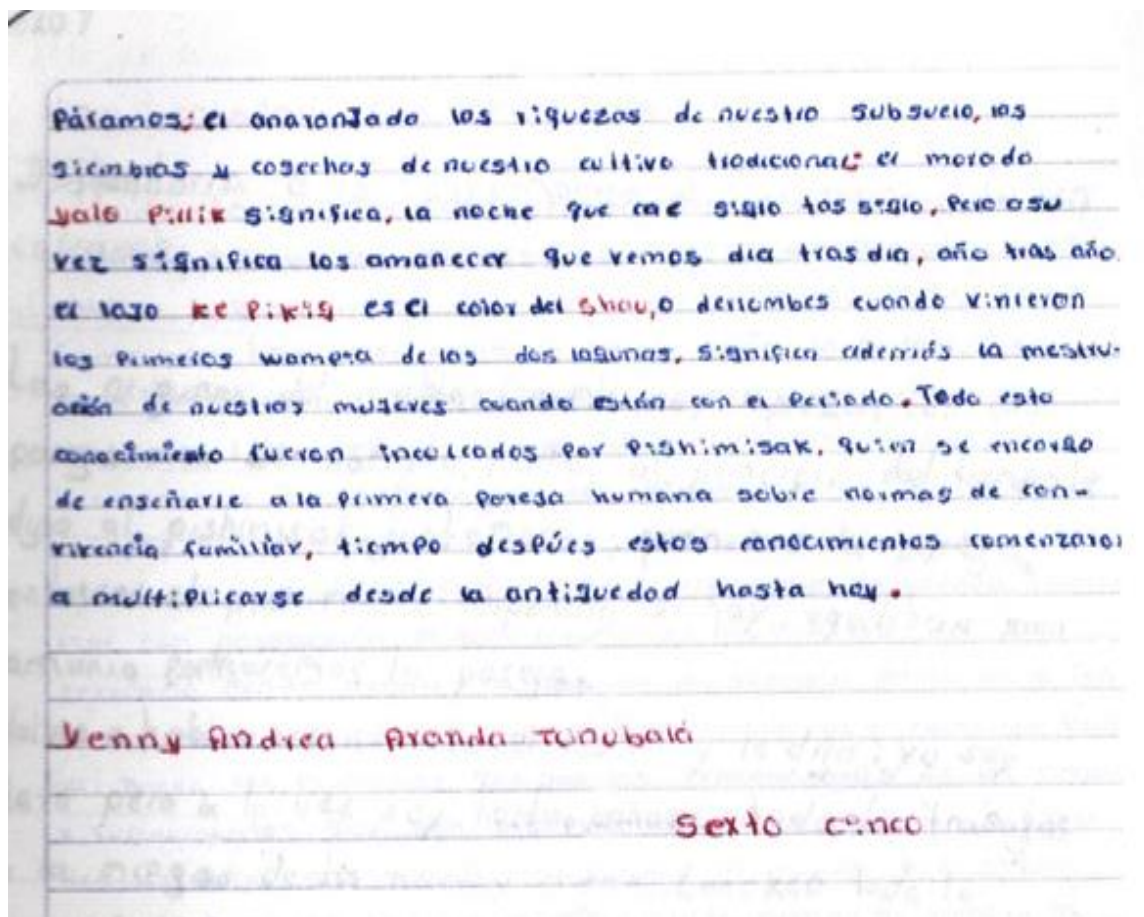 Páramos; el anaranjado las riquezas de nuestro subsuelo, las
siembras y cosechas de nuestro cultivo tradicional; el morado
yalө Pillik significa, la noche que cae siglo tas siglo, Pero a su
vez significa los amanecer que vemos dia tras dia, año tras año.
el lazo ke Pikiş es el color del shau, o derrumbes cuando vinieron
los Primeros wampia de las dos lagunas, significa además la mestru-
ación de nuestras mujeres cuando están con el Periodo. Todo esto
conocimiento fueron inculcados por Pishimisak, quien se encargo
de enseñarle a la primera pareja humana sobre normas de con-
vivencia familiar, tiempo despúes estos conocimientos comenzaron
a multiplicarse desde la antiguedad hasta hoy.
Yenny Andrea Aranda Tunubalá
Sexto cinco